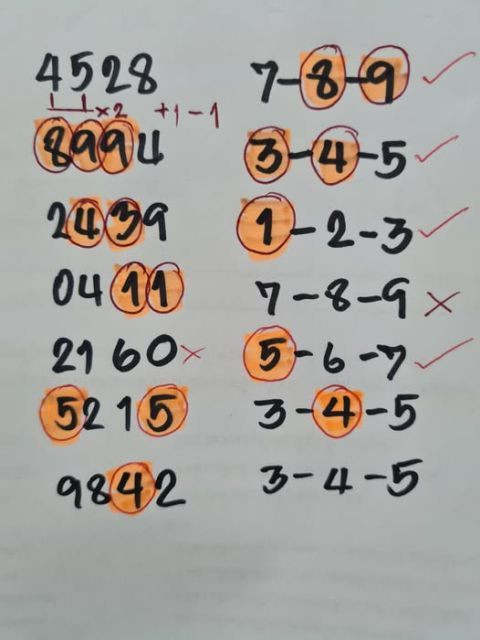 4528 7-8-9 ✓
×2 +1-1
8994 3-4-5 ✓
2439 1-2-3 ✓
0411 7-8-9 ×
2160 × 5-6-7 ✓
5215 3-4-5
9842 3-4-5